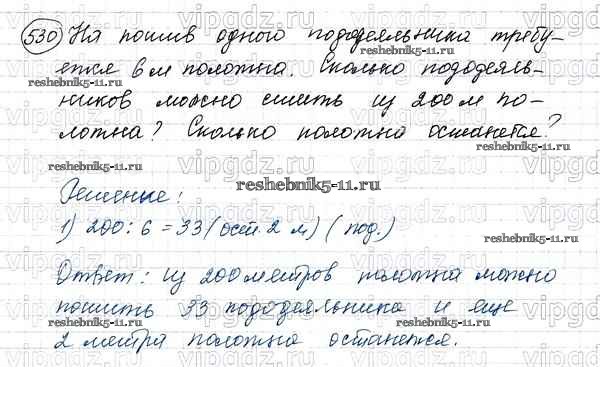 530 На пошив одного пододеяльника требу-
ется 6 м полотна. Сколько пододеяль-
ников можно сшить из 200 м по-
лотна? Сколько полотна останется?
reshebnik5-11.ru
Решение:
1) 200 : 6 = 33 (ост. 2 м) (под.)
Ответ: из 200 метров полотна можно
пошить 33 пододеяльника и еще
2 метра полотна останется.